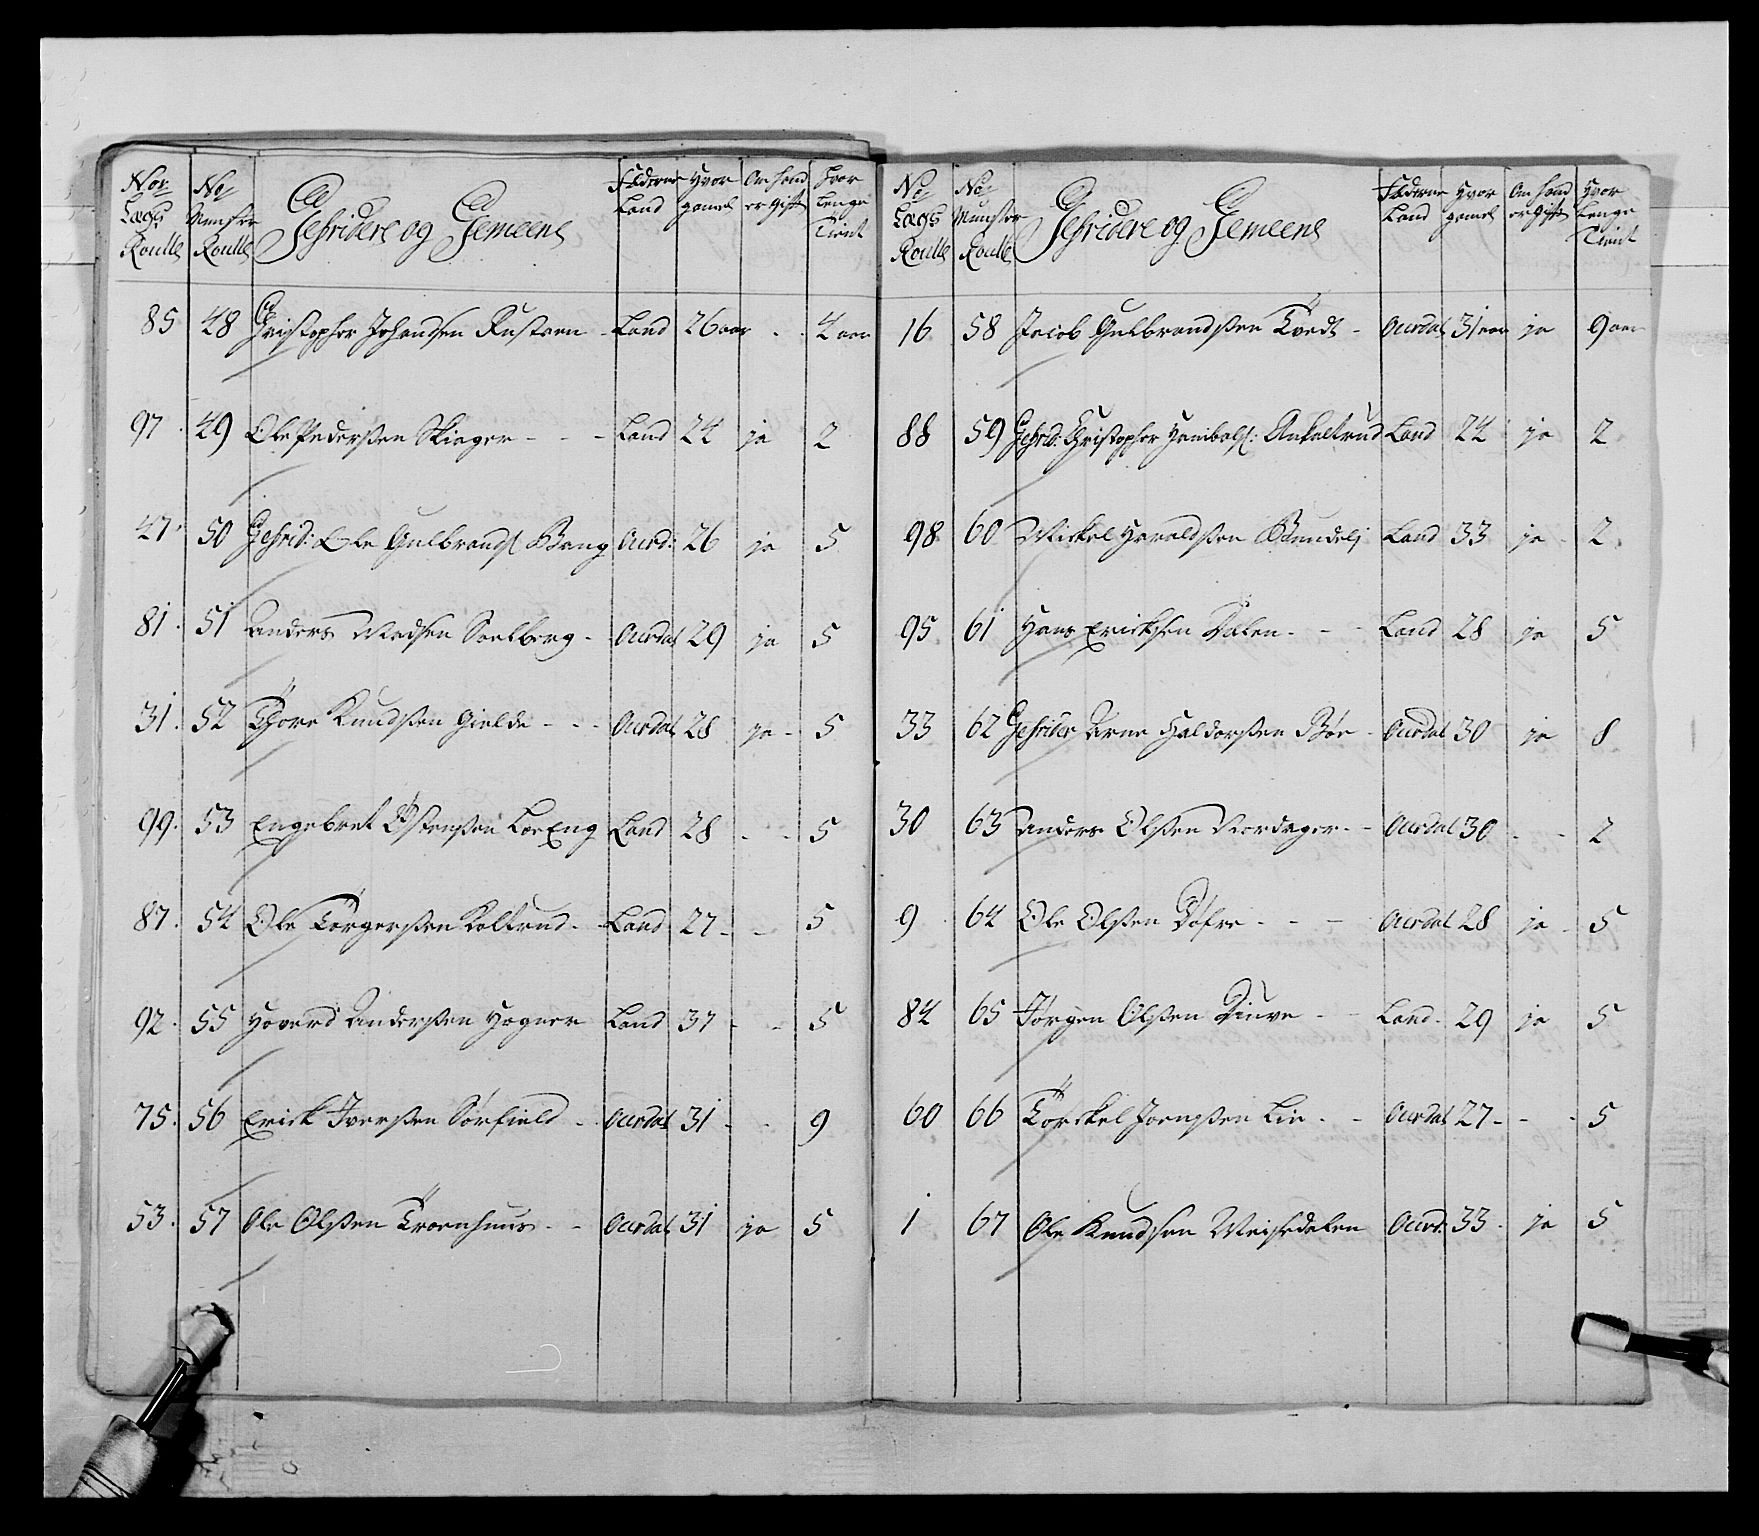 No: Lægs Roulle | No: Munster Roulle | Gefridere og Gemeene | Fæderne Land | Hvor gamel | Om hand er gift | Hvor lenge Tient
85 48 Christopher Johandsen Rustaen - Land 26 aar - - 4 aar
97. 49 Ole Pedersen Skiager - - - Land 24 ja 2
47. 50 Gefrid: Ole Gulbrands: Bang Aurd: 26 ja 5
81. 51 Anders Madsen Soelberg - Aurdal 29 ja 5
31. 52 Thore Knudsen Gielde - - - Aurdal 28 ja - 5
99. 53 Engebret Østensen LoeEng Land 28 - - 5
87. 54 Ole Törgersen Koltrud - Land 27 - - 5
92. 55 Hovard Andersen Hogner Land 37 - - 5
75. 56 Erick Iversen Sørfield - Aurdal 31 - - 9
53. 57 Ole Olsen Troenhuus - - Aurdal 31 ja 5
No: Lægs Roulle | No: Munster Roulle | Gefridere og Gemeene | Fæderne Land | Hvor gamel | Om hand er gift | Hvor lenge Tient
16 58 Jacob Gulbrandsen Tvedt - Aurdal 31 aar ja 9 aar
88 59 Gefrid: Christopher Hanibals: Ankeltrud Land 24 ja 2
98 60 Mickel Haraldsen Land 33 ja - 2
95 61 Hans Ericksen Dalen - - - Land 28 ja 5
33 62 Gefrider Arne Haldorsen Bøe - Aurdal 30 ja 8
30 63 Anders Olsen Nordager - - Aurdal 30 - - 2
9 64 Ole Olsen Døfre - - - Aurdal 28 ja - 5
84 65 Jørgen Olsen - - Land - 29 ja 5
60 66 Törckel Joensen Lie - - Aurdal 27 - - - 5
1 67 Ole Knudsen Meisedalen Aurd: 33 - ja 5